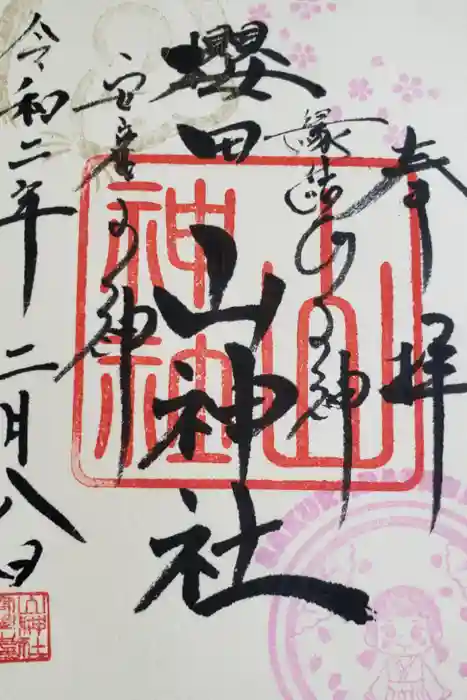 奉拝
縁結びの神
櫻田山神社
安産の神
令和二年 二月八日
山神社